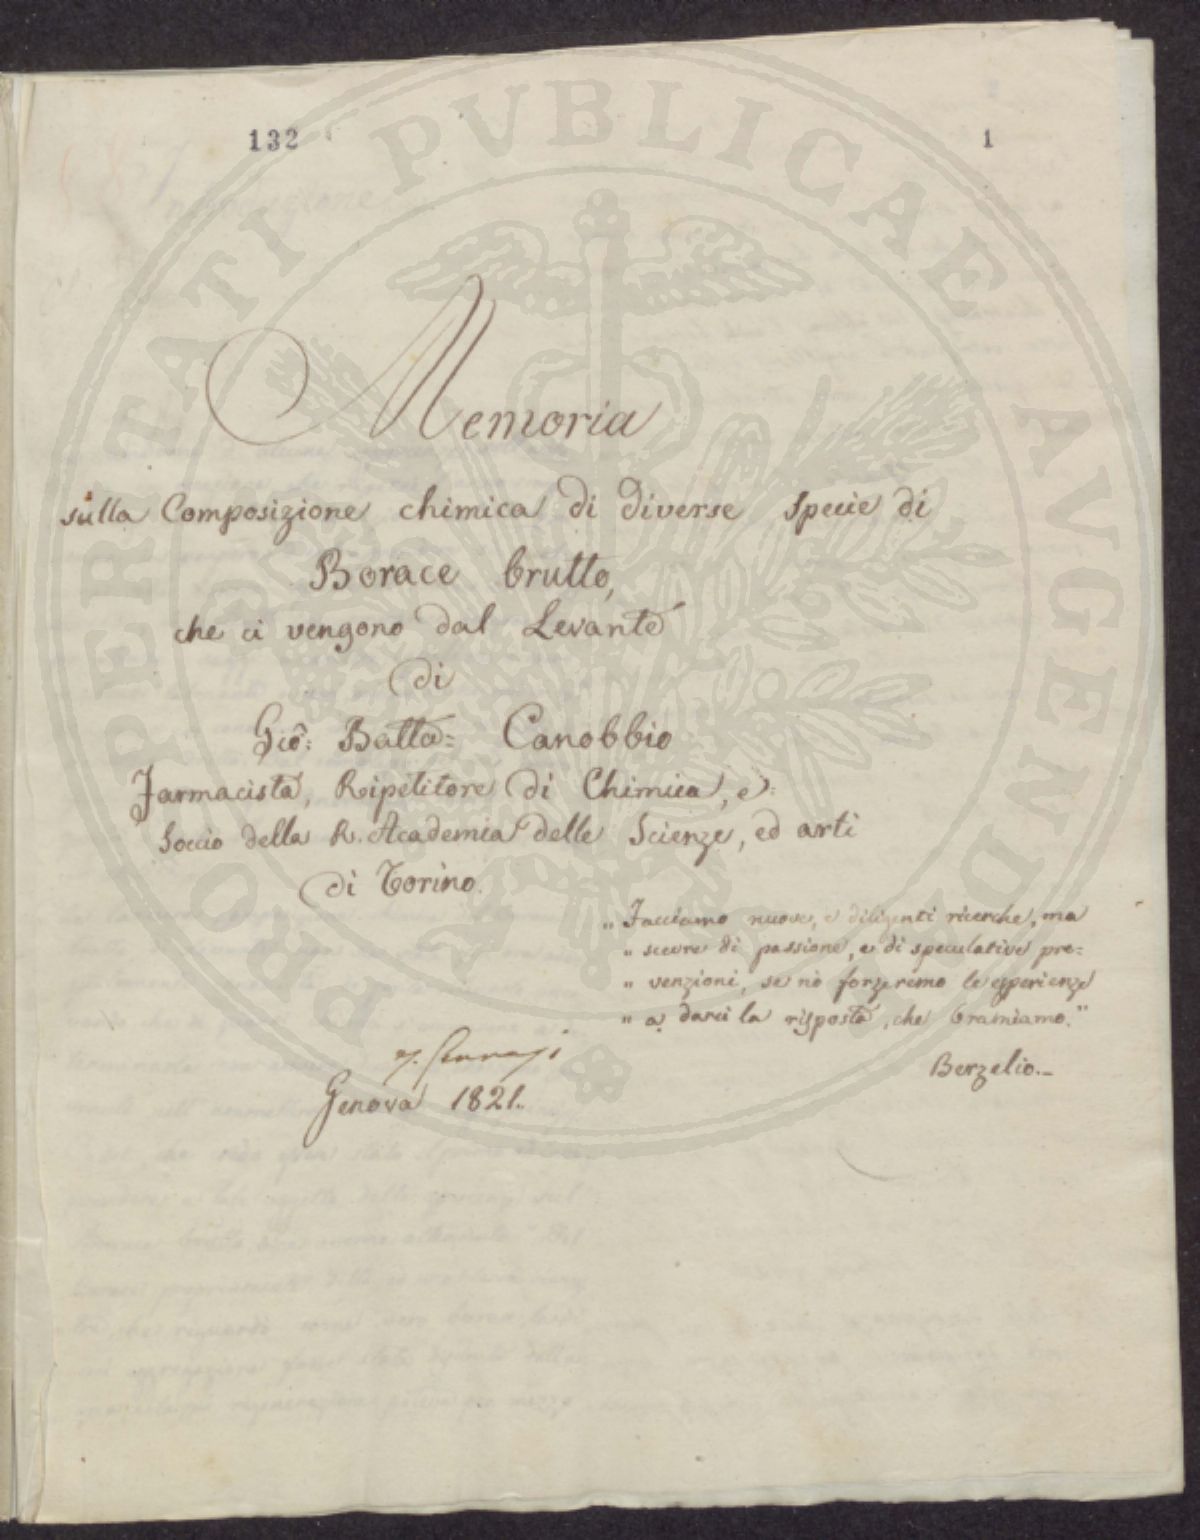 132
1
Memoria
sulla Composizione chimica di diverse specie di
Borace brutto,
che ci vengono dal Levante
di
Gio: Batta= Canobbio
Farmacista, Ripetitore di Chimica, e
Soccio della R. Accademia delle Scienze, ed arti
di Torino.
„ Facciamo nuove, e diligenti ricerche, ma
„ scevre di passione, e di speculative pre=
„ venzioni, se nò forzeremo le esperienze
„ a darci la risposta, che bramiamo."
Berzelio._
Genova 1821.
PROSPERITATI PVBLICAE AVGENDAE